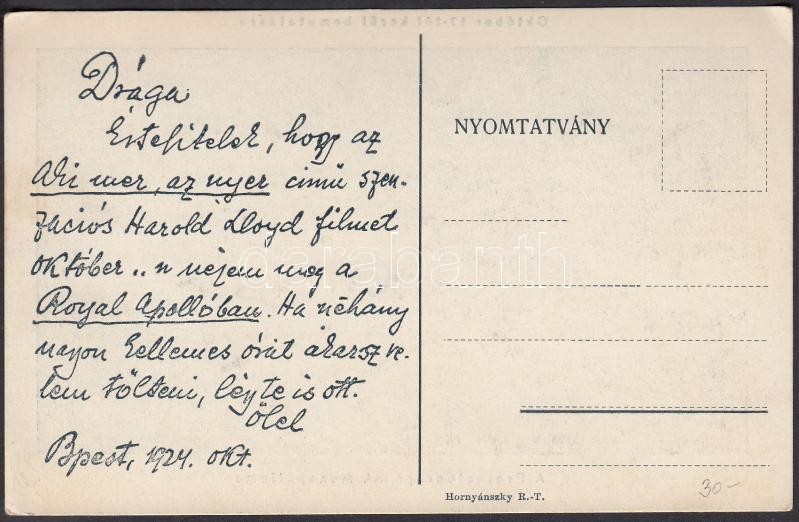 Drága
Értesitelek, hogy az
Aki mer, az nyer cimü szen-
zációs Harold Lloyd filmet
október .. n nézem meg a
Royal Apollóban. Ha néhány
nagyon kellemes órát akarsz ve-
lem tölteni, légy te is ott.
Ölel
Bpest, 1924. okt.
NYOMTATVÁNY
Hornyánszky R.-T.
30-
darabanth
Október 17-től kerül bemutatásra